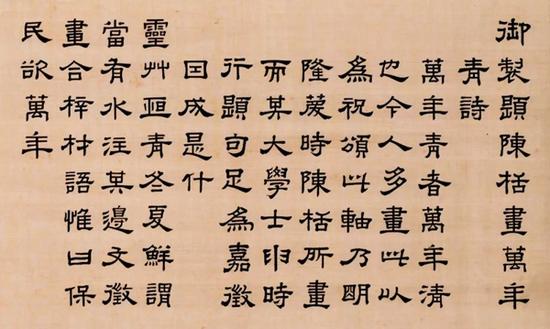 御製題陳栝畫萬年
青詩
萬年青者萬年清
也今人多畫此以
為祝頌此軸乃明
隆慶時陳栝所畫
而其大學士申時
行題句足為嘉徵
因成是什
靈艸亙青冬夏鮮謂
當有水注其邊文徵
畫合梓材語惟曰保
民欲萬年